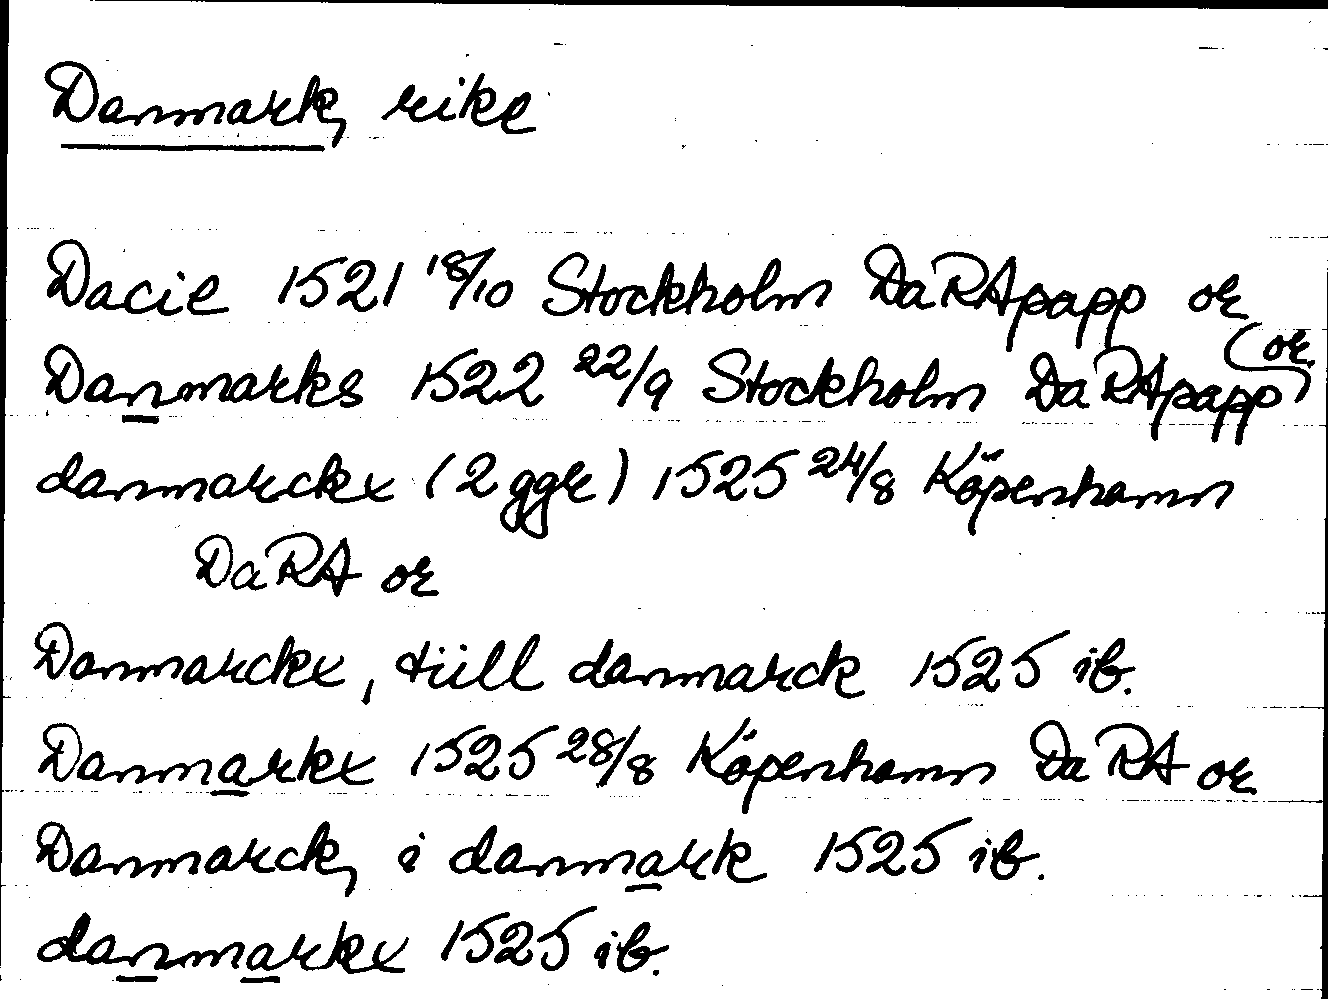 Danmark, rike
Dacie 1521 18/10 Stockholm DaRApapp or
Danmarks 1522 22/9 Stockholm DaRApapp or
danmarckx (2 ggr) 1525 24/8 Köpenhamn
DaRA or
Danmarckx, tiill danmarck 1525 ib.
Danmarkx 1525 28/8 Köpenhamn DaRA or
Danmarck, i danmark 1525 ib.
danmarkx 1525 ib.